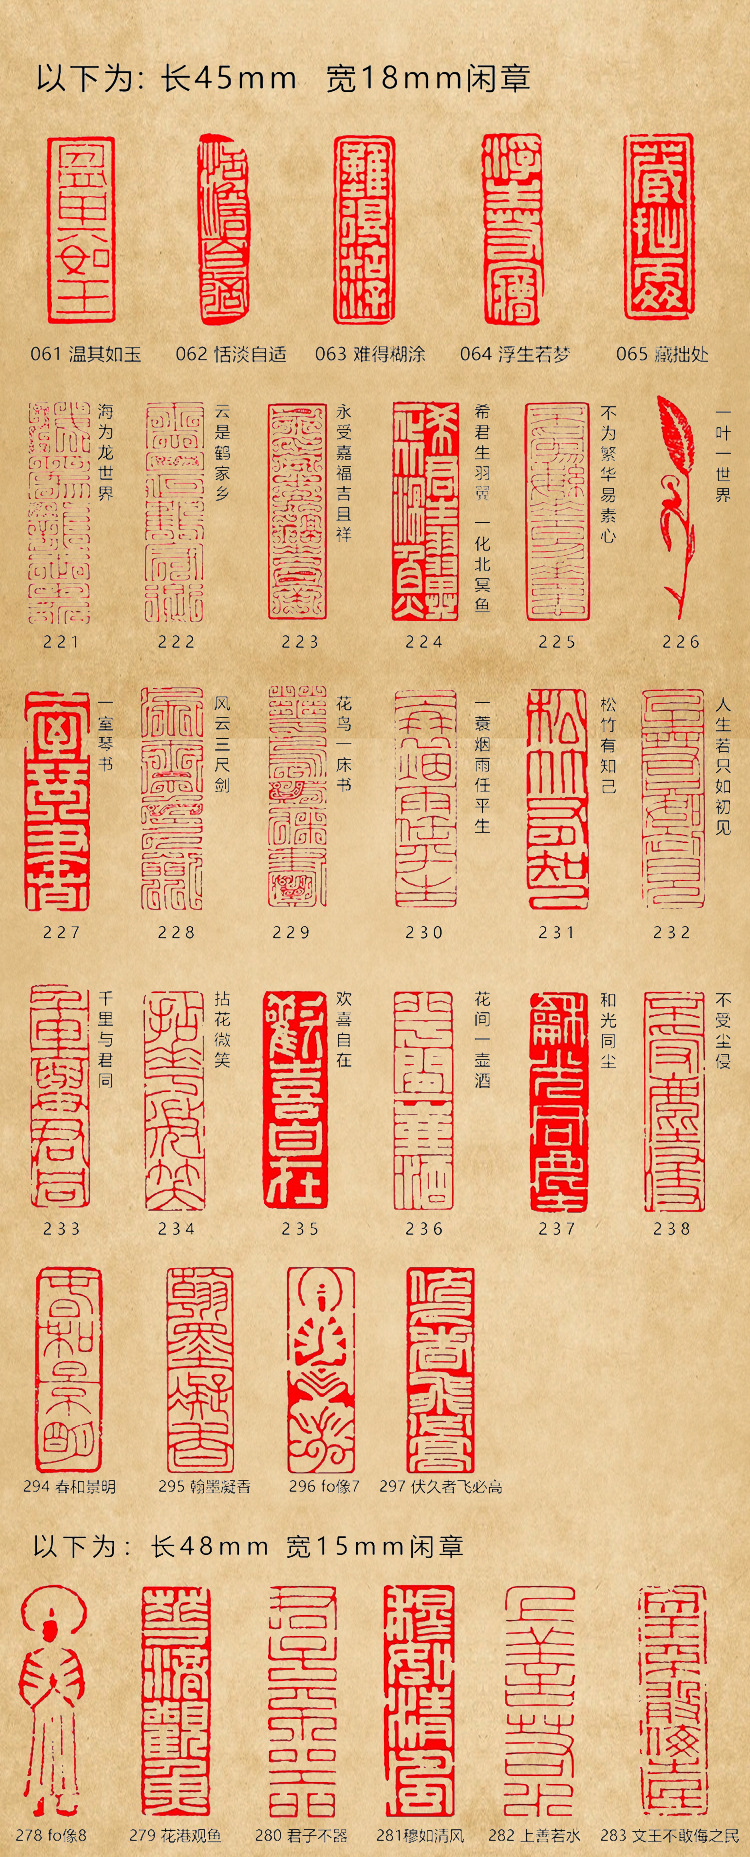 以下为: 长45mm 宽18mm闲章
061 温其如玉
062 恬淡自适
063 难得糊涂
064 浮生若梦
065 藏拙处
海为龙世界
221
云是鹤家乡
222
永受嘉福吉且祥
223
希君生羽翼 一化北冥鱼
224
不为繁华易素心
225
一叶一世界
226
一室琴书
227
风云三尺剑
228
花鸟一床书
229
一蓑烟雨任平生
230
松竹有知己
231
人生若只如初见
232
千里与君同
233
拈花微笑
234
欢喜自在
235
花间一壶酒
236
和光同尘
237
不受尘侵
238
294 春和景明
295 翰墨凝香
296 fo像7
297 伏久者飞必高
以下为: 长48mm 宽15mm闲章
278 fo像8
279 花港观鱼
280 君子不器
281穆如清风
282 上善若水
283 文王不敢侮之民